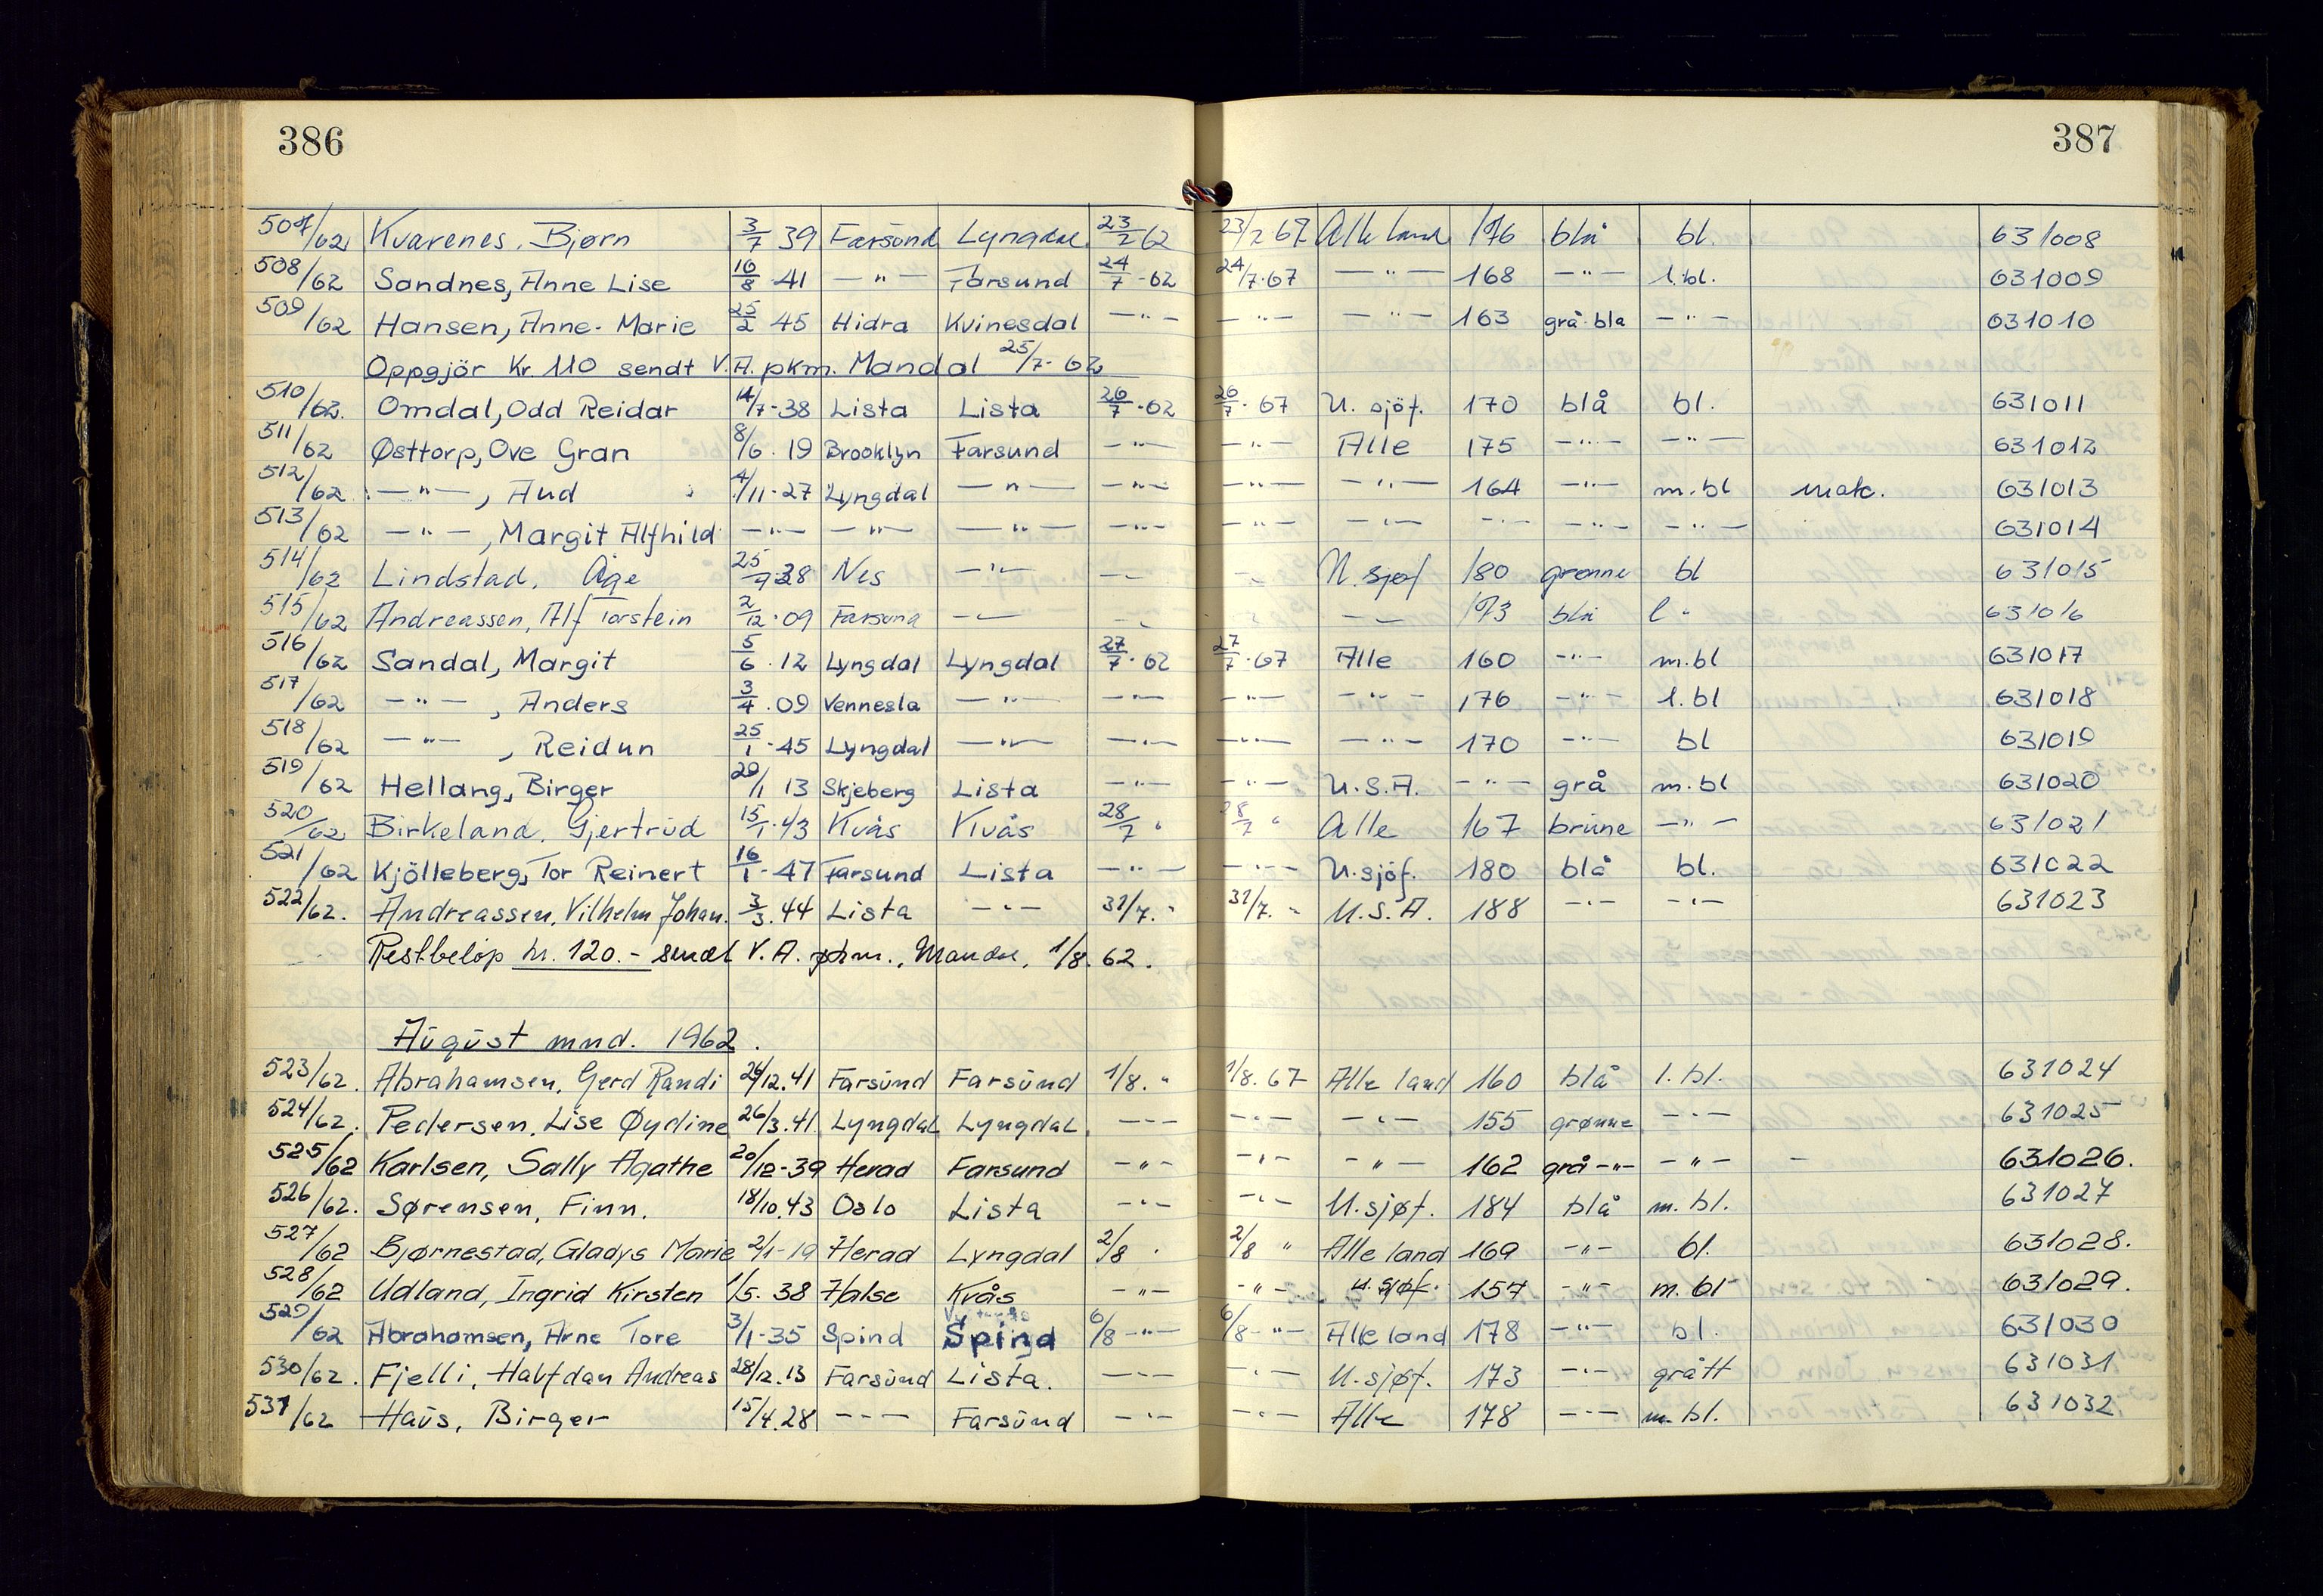 386
387
507/62 Kvarenes, Bjørn 3/7 39 Farsund Lyngdal 23/7 62 23/7 67 Alle land 176 blå bl. 631008
508/62 Sandnes, Anne Lise 16/8 · 41 — " — Farsund 24/7 · 62 24/7 · 67 — " — 168 — " — l. bl. 631009
509/62 Hansen, Anne-Marie 25/2 45 Hidra Kvinesdal — " — — " — — " — 163 grå-blå — " — 631010
Oppgjör Kr. 110 sendt V.A. pkm. Mandal 25/7- 62
510/62. Omdal, Odd Reidar 14/7-38 Lista Lista 26/7 · 62 26/7 · 67 U. sjöf. 170 blå bl. 631011
511/62 Østtorp, Ove Gran 8/6 . 19 Brooklyn Farsund — " — — " — Alle 175 — " — — " — 631012
512/62 — " —, Aud 4/11-27 Lyngdal — " — — " — — " — — " — 164 — " — m. bl mak. 631013
513/62 — " —, Margit Alfhild — " — — " — — " — — " — — " — — " — — " — — " — — " — 631014
514/62 Lindstad, Åge 25/9 38 Nes — " — — " — — " — U. sjøf 180 grønne bl 631015
515/62 Andreassen, Alf Torstein 2/12 · 09 Farsund — " — — " — — " — — " — 173 blå l " 631016
516/62 Sandal, Margit 5/6 . 12 Lyngdal Lyngdal 27/7 · 62 27/7 · 67 Alle 160 — " — m. bl 631017
517/62 — " —, Anders 3/4 . 09 Vennesla — " — — " — — " — — " — 176 — " — l. bl 631018
518/62 — " —, Reidun 25/1 · 45 Lyngdal — " — — " — — " — — " — 170 — " — bl 631019
519/62 Hellang, Birger 29/1 13 Skjeberg Lista — " — — " — U.S.A. — " — grå m. bl 631020
520/62 Birkeland, Gjertrud 15/1 · 43 Kvås Kvås 28/7 " 28/7 " Alle 167 brune — " — 631021
521/62 Kjölleberg, Tor Reinert 16/1 · 47 Farsund Lista — " — — " — U. sjöf. 180 blå bl. 631022
522/62. Andreassen, Vilhelm Johan. 3/3. 44 Lista — " — 31/7. " 31/7. " U.S.A. 188 — " — — " — 631023
Restbeløp kr. 120.- sendt V.A. pkm., Mandal, 1/8. 62.
August mnd. 1962.
523/62. Abrahamsen, Gerd Randi 24/12. 41 Farsund Farsund 1/8. " 1/8. 67 Alle land 160 blå l. bl. 631024
524/62. Pedersen, Lise Øydine 26/3. 41. Lyngdal Lyngdal. — " — — " — — " — 155 grønne — " — 631025
525/62 Karlsen, Sally Agathe 20/12-39 Herad Farsund — " — — " — — " — 162 grå -"- — " — - 631026.
526/62. Sørensen, Finn. 18/10. 43 Oslo Lista — " — — " — U. sjøf. 184 blå m. bl. 631027
527/62 Bjørnestad, Gladys Marie 2/1-19 Herad Lyngdal 2/8 " 2/8 " Alle land 169 -"- bl. 631028.
528/62 Udland, Ingrid Kirsten 1/5. 38 Halse Kvås -"- -"- u. sjøf. 157 -"- m. bl 631029.
529/62 Abrahamsen, Arne Tore 3/1-35 Spind Spind 6/8 -"- 6/8 -"- Alle land 178 -"- bl. 631030
530/62. Fjelli, Halfdan Andreas 28/12. 13 Farsund Lista. — " — — " — U. sjøf. 173 — " — grått 631031
531/62 Haus, Birger 15/4. 28 — " — Farsund — " — — " — Alle 178 — " — m. bl. 631032